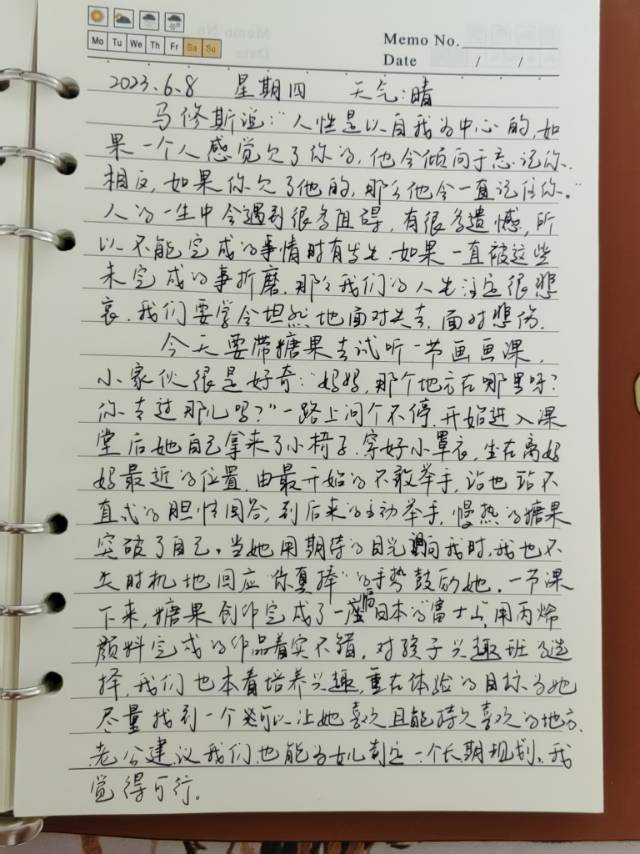 Mo Tu We Th Fr Sa Su
Memo No.
Date / /
2023.6.8 星期四 天气:晴
马修斯说:“人性是以自我为中心的,如
果一个人感觉欠了你的,他会倾向于忘记你.
相反,如果你欠了他的,那么他会一直记住你。”
人的一生中会遇到很多阻碍,有很多遗憾,所
以不能完成的事情时有发生.如果一直被这些
未完成的事折磨.那么我们的人生注定很悲
哀.我们要学会坦然地面对失去,面对悲伤.
今天要带糖果去试听一节画画课,
小家伙很是好奇:“妈妈,那个地方在哪里呀?
你去过那儿吗?”一路上问个不停.开始进入课
堂后她自己拿来了小椅子.穿好小罩衣,坐在离妈
妈最近的位置.由最开始的不敢举手,站也站不
直式的胆怯回答,到后来的主动举手,慢热的糖果
突破了自己。当她用期待的目光看向我时,我也不
失时机地回应“你真棒”的手势鼓励她.一节课
下来,糖果创作完成了一座日本的富士山,用丙烯
颜料完成的作品着实不错.对孩子兴趣班的选
择,我们也本着培养兴趣,重在体验的目标.为她
尽量找到一个可以让她喜欢且能持久喜欢的地方.
老公建议我们也能为女儿制定一个长期规划。我
觉得可行。